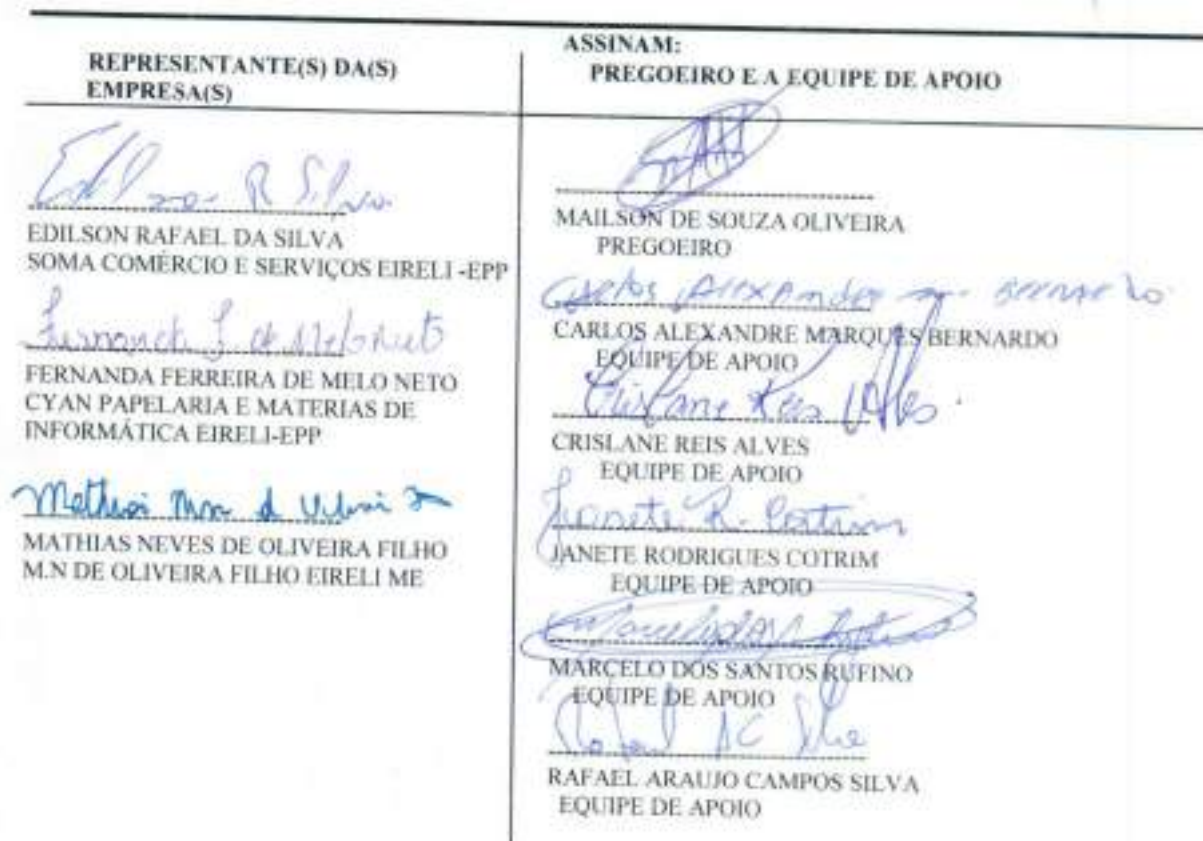 REPRESENTANTE(S) DA(S)
EMPRESA(S)
Edilson R Silva
EDILSON RAFAEL DA SILVA
SOMA COMÉRCIO E SERVIÇOS EIRELI -EPP
Fernanda F de Melo Neto
FERNANDA FERREIRA DE MELO NETO
CYAN PAPELARIA E MATERIAS DE
INFORMÁTICA EIRELI-EPP
MATHIAS NEVES DE OLIVEIRA FILHO
M.N DE OLIVEIRA FILHO EIRELI ME
ASSINAM:
PREGOEIRO E A EQUIPE DE APOIO
MAILSON DE SOUZA OLIVEIRA
PREGOEIRO
Carlos Alexandre m. Bernardo
CARLOS ALEXANDRE MARQUES BERNARDO
EQUIPE DE APOIO
Crislane Reis Alves
CRISLANE REIS ALVES
EQUIPE DE APOIO
Janete R. Cotrim
JANETE RODRIGUES COTRIM
EQUIPE DE APOIO
MARCELO DOS SANTOS RUFINO
EQUIPE DE APOIO
Rafael AC Silva
RAFAEL ARAUJO CAMPOS SILVA
EQUIPE DE APOIO